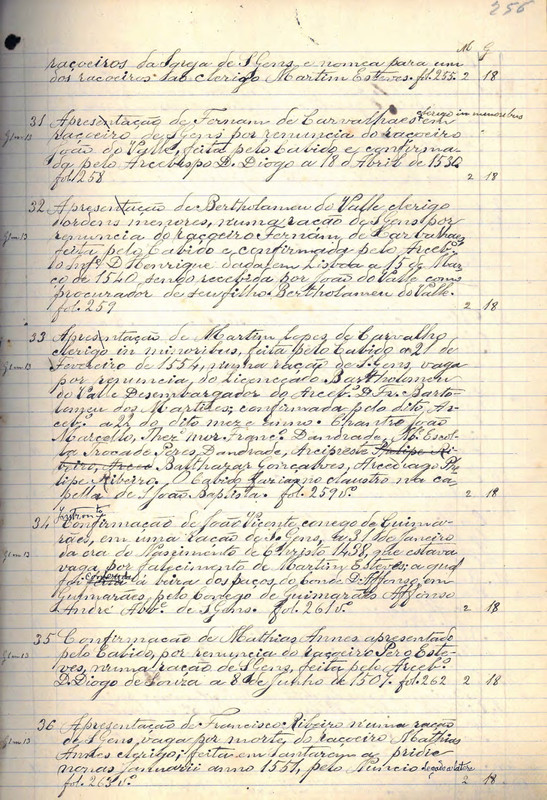 256
M G
raçoeiros da Igreja de S. Gens, e nomea para um
dos raçoeiros ao clerigo Martim Esteves. fol. 255. 2 18
31 Apresentação de Fernam de Carvalhaes em clerigo in minoribus
Gl m 13 raçoeiro de S. Gens por renuncia do raçoeiro
João do Valle, feita pelo Cabido e confirma-
da pelo Arcebispo D. Diogo a 18 d'Abril de 153
fol 258 2 18
32 Apresentação de Bertholameu do Valle clerigo
d'ordens menores, numa ração de S. Gens por
Gl m 13 renuncia do raçoeiro Fernam de Carvalhaes
feita pelo Cabido e confirmada pelo Arceb.º
Inf.e D. Henrique dada em Lisboa a 15 de Mar-
ço de 1540, sendo recebida por João do Valle como
procurador de seu filho Bertholameu do Valle.
fol. 259 2 18
33 Apresentação de Martim Lopes de Carvalho
clerigo in minoribus, feita pelo Cabido a 21 de
Gl m 13 Fevereiro de 1554, numa ração de S. Gens, vaga
por renuncia do licenceado Bartholomeu
do Valle Desembargador do Arceb.º D. Fr. Barto-
lomeu dos Martires; confirmada pelo dito Ar-
ceb.º a 28 do dito mez e anno. Chantre João
Marcello, Thez.º Mór Franc.º Dandrade, M.e Escol-
la Trocade Peres Dandrade, Arcipreste Philipe Ri-
beiro, Arced Balthazar Gonçalves, Arcediago Phi-
lipe Ribeiro. O Cabido no claustro na ca-
pella de S. João Baptista. fol. 259 v.º 2 18
Instrom.to
34 Confirmação de João Vicente, conego de Guima-
rães, em uma ração de S. Gens, a 31 de Janeiro
Gl m 13 da era do Nascimento de Christo 1458, que estava
vaga por falecimento de Martim Esteves; a qual
foi feita á beira dos paços do conde D. Affonso, em
Guimarães pelo conego de Guimarães Affonso
André Abb.e de S. Gens. fol. 261 v.º 2 18
35 Confirmação de Mathias Annes apresentado
Gl m 13 pelo Cabido, por renuncia do raçoeiro Pero Este-
ves, numa ração de S. Gens, feita pelo Arceb.º
D. Diogo de Souza a 8 de Junho de 1507. fol. 262 2 18
36 Apresentação de Francisco Ribeiro numa ração
Gl m 13 de S. Gens, vaga por morte do raçoeiro Mathias
Annes clerigo; feita em Cantaram a pridie
nonas Januarii anno 1551, pelo Nuncio
fol. 263 v.º 2 18